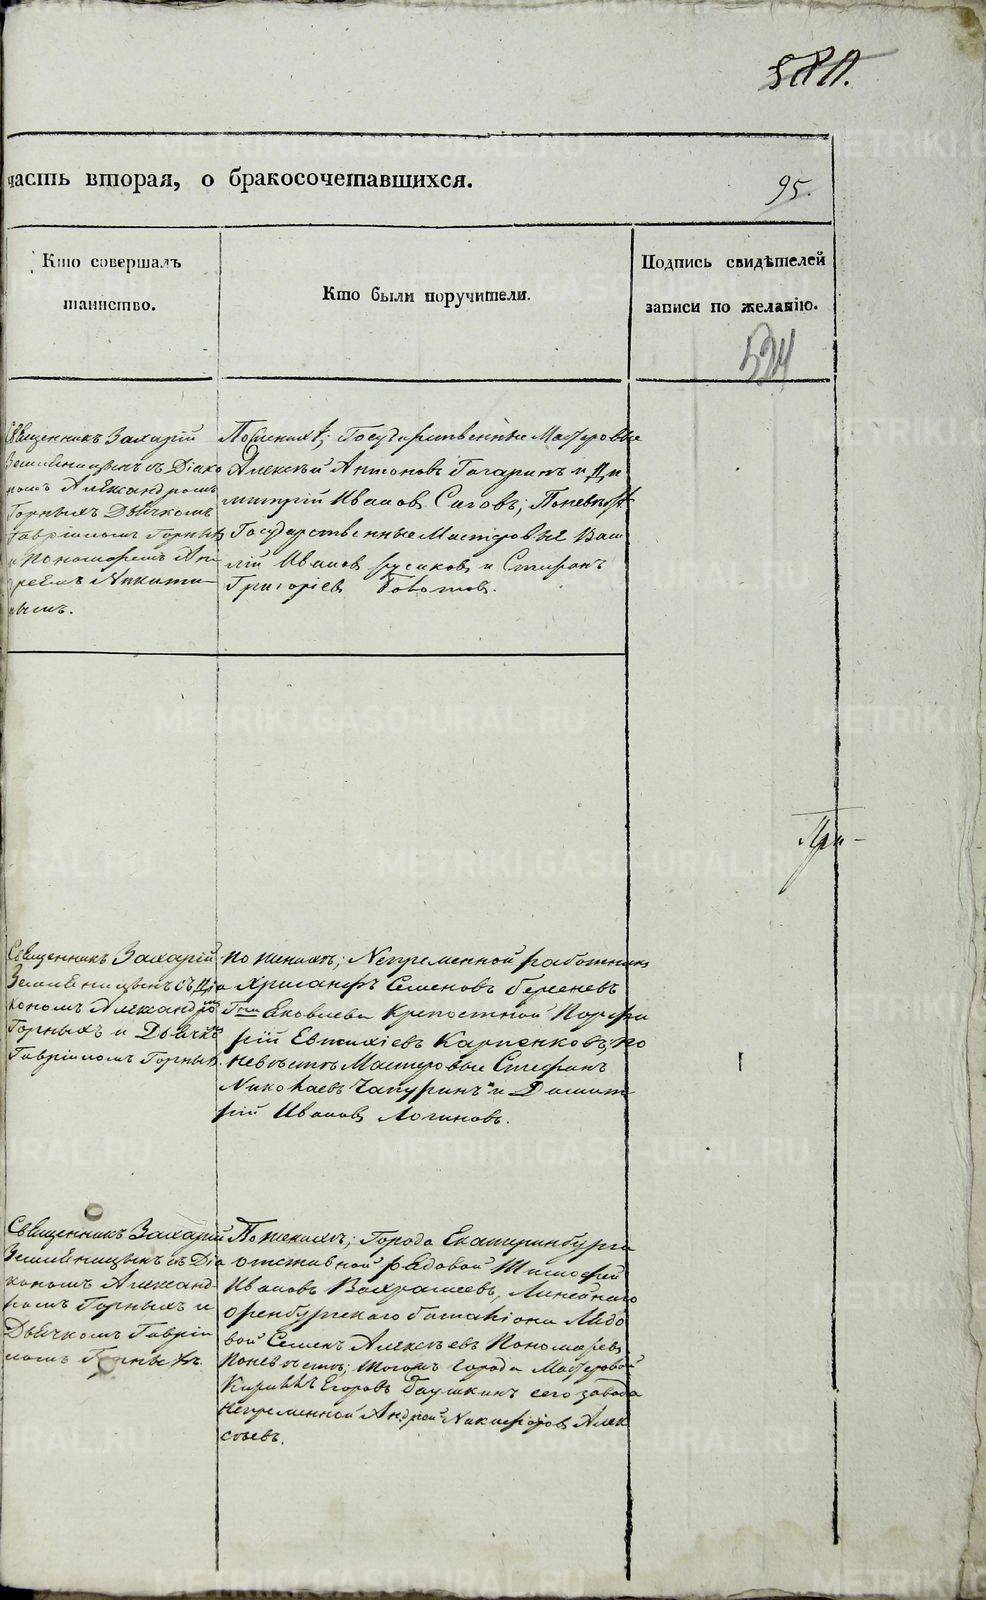 часть вторая, о бракосочетавшихся.
95.
Кто совершалъ
таинство.
Кто были поручители.
Подпись свидѣтелей
записи по желанію.
524
Священникъ Захарій
Земляницынъ съ Діако
номъ Александромъ
Горныхъ Дьячкомъ
Гавріиломъ Горныхъ
и Пономаремъ Ан
дреемъ Никити
нымъ.
По женихѣ; Государственные Мастеровые
Алексѣй Антоновъ Гагаринъ и Ди
митрій Ивановъ Сиговъ; По невѣстѣ
Государственные Мастеровые Васи
лій Ивановъ Русиновъ и Стефанъ
Григоріевъ
Священникъ Захарій
Земляницынъ съ Діа
кономъ Александромъ
Горныхъ и Дьячкомъ
Гавріиломъ Горныхъ.
По женихѣ; Непременной работникъ
Хрисанфъ Семеновъ Берсеневъ
Гна Яковлева Крепостной Порфи
рій Евтихіевъ Карпенковъ; по
невѣстѣ Мастеровые Стефанъ
Николаевъ Чапуринъ и Димит
рій Ивановъ Логиновъ.
При-
Священникъ Захарій
Земляницынъ съ Діа
кономъ Александ
ромъ Горныхъ и
Дьячкомъ Гавріи
ломъ Горныхъ.
По женихѣ; Города Екатеринбурга
отставной рядовой Тимофей
Ивановъ Вахрамеевъ, Линейнаго
Оренбургскаго баталіона Рядо
вой Семенъ Алексѣевъ Пономаревъ
По невѣстѣ; тогожъ города Мастеровой
Кириллъ Егоровъ Баушкинъ сего завода
непременной Андрей Никифоровъ Алек
сѣевъ.
METRIKI.GASO-URAL.RU